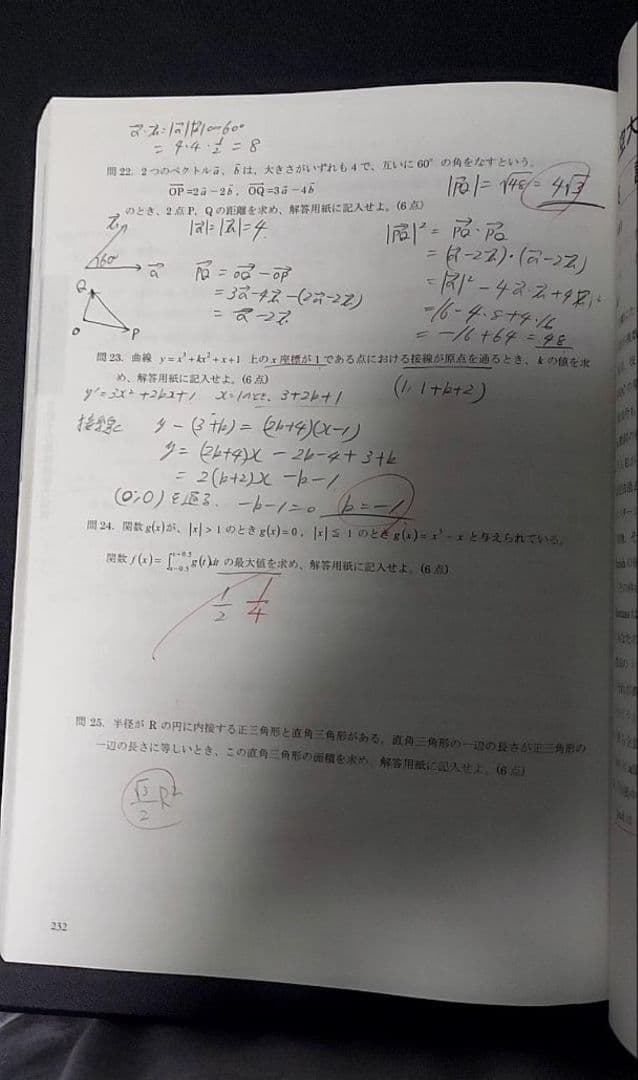 a⃗・b⃗=|a⃗||b⃗|cos60°
= 4・4・1/2 = 8
問22. 2つのベクトルa⃗, b⃗は、大きさがいずれも4で、互いに60°の角をなすという。
OP⃗=2a⃗-2b⃗, OQ⃗=3a⃗-4b⃗
のとき、2点P, Qの距離を求め、解答用紙に記入せよ。(6点)
|PQ⃗|=√48=4√3
|a⃗|=|b⃗|=4
b⃗
60°
a⃗
Q
O
P
PQ⃗=OQ⃗-OP⃗
=3a⃗-4b⃗-(2a⃗-2b⃗)
=a⃗-2b⃗
|PQ⃗|²=PQ⃗・PQ⃗
=(a⃗-2b⃗)・(a⃗-2b⃗)
=|a⃗|²-4a⃗・b⃗+4|b⃗|²
=16-4・8+4・16
=-16+64=48
問23. 曲線 y=x³+kx²+x+1 上のx座標が1である点における接線が原点を通るとき、kの値を求
め、解答用紙に記入せよ。(6点)
y'=3x²+2kx+1 x=1のとき、3+2k+1
(1, 1+k+2)
接線に y-(3+k)=(2k+4)(x-1)
y=(2k+4)x-2k-4+3+k
=2(k+2)x-k-1
(0,0)を通る. -k-1=0 k=-1
問24. 関数g(x)が、|x|>1のときg(x)=0, |x|≦1のときg(x)=x³-xと与えられている。
関数f(x)=∫_{x-0.5}^{x+0.5}g(t)dtの最大値を求め、解答用紙に記入せよ。(6点)
1/2 1/4
問25. 半径がRの円に内接する正三角形と直角三角形がある。直角三角形の一辺の長さが正三角形の
一辺の長さに等しいとき、この直角三角形の面積を求め、解答用紙に記入せよ。(6点)
√3/2 R²
232